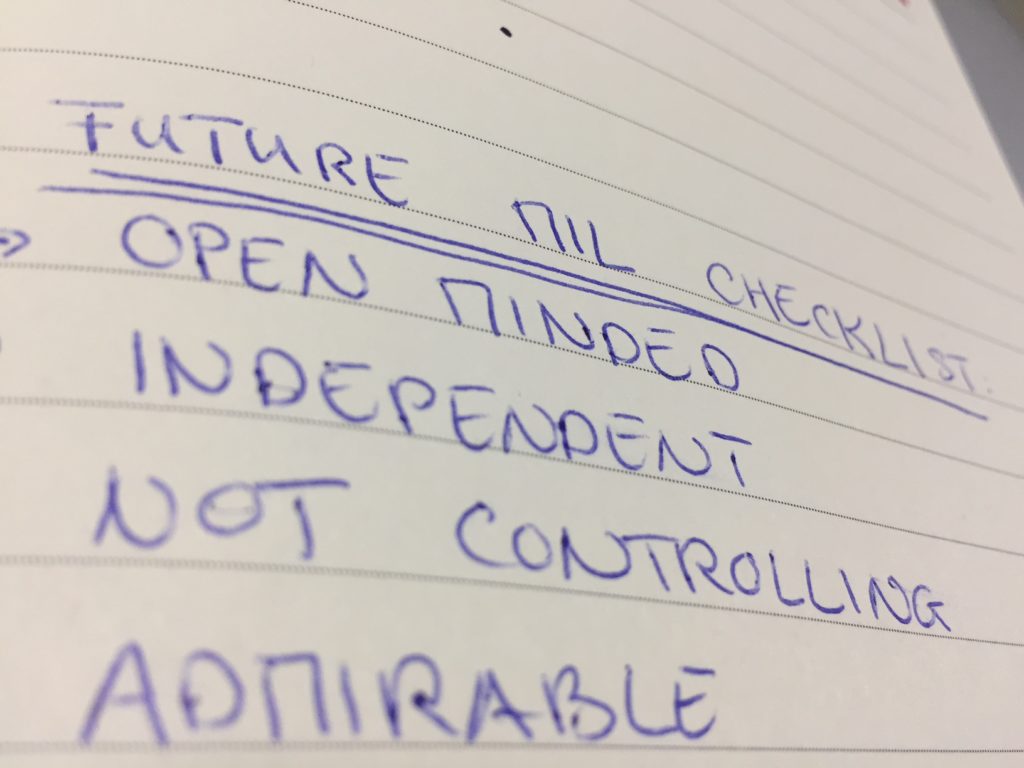 FUTURE MIL CHECKLIST.
→ OPEN MINDED
INDEPENDENT
NOT CONTROLLING
ADMIRABLE